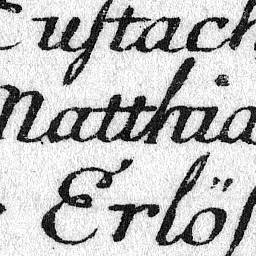 Eustach
Matthia
Erlös